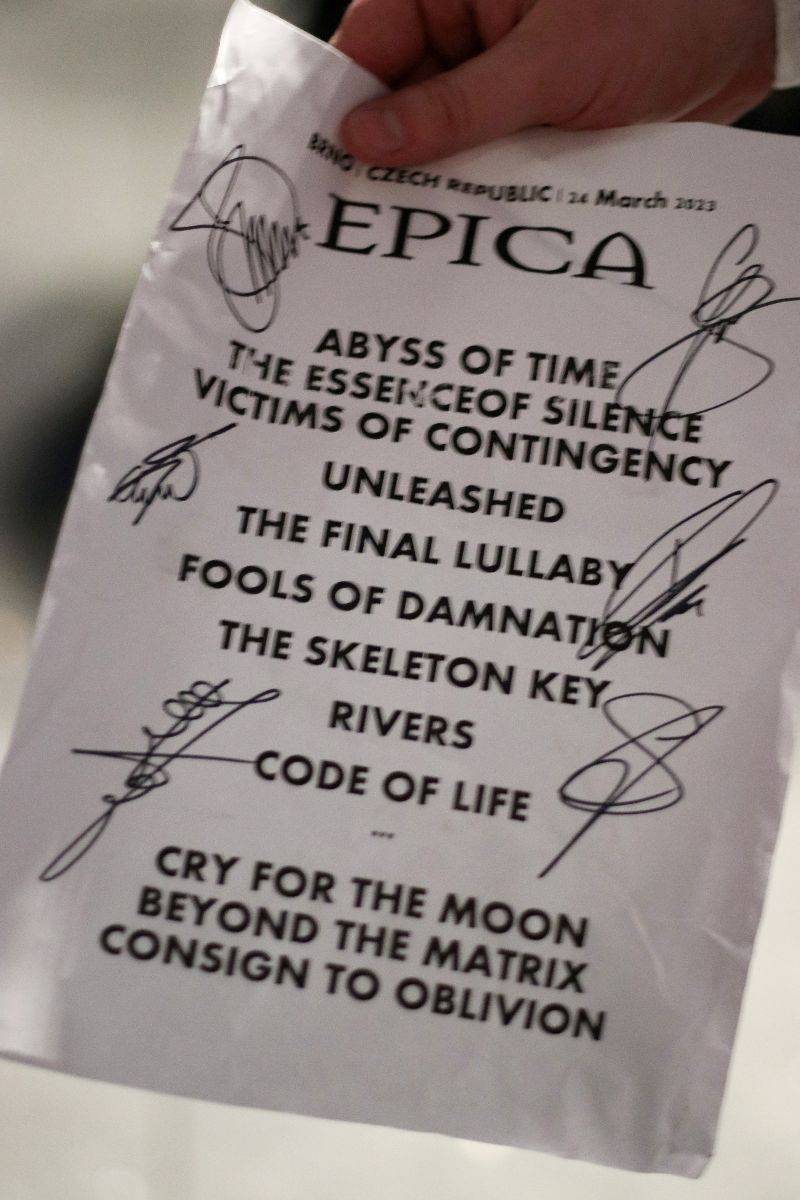 BRNO | CZECH REPUBLIC | 24 March 2023
EPICA
ABYSS OF TIME
THE ESSENCEOF SILENCE
VICTIMS OF CONTINGENCY
UNLEASHED
THE FINAL LULLABY
FOOLS OF DAMNATION
THE SKELETON KEY
RIVERS
CODE OF LIFE
...
CRY FOR THE MOON
BEYOND THE MATRIX
CONSIGN TO OBLIVION